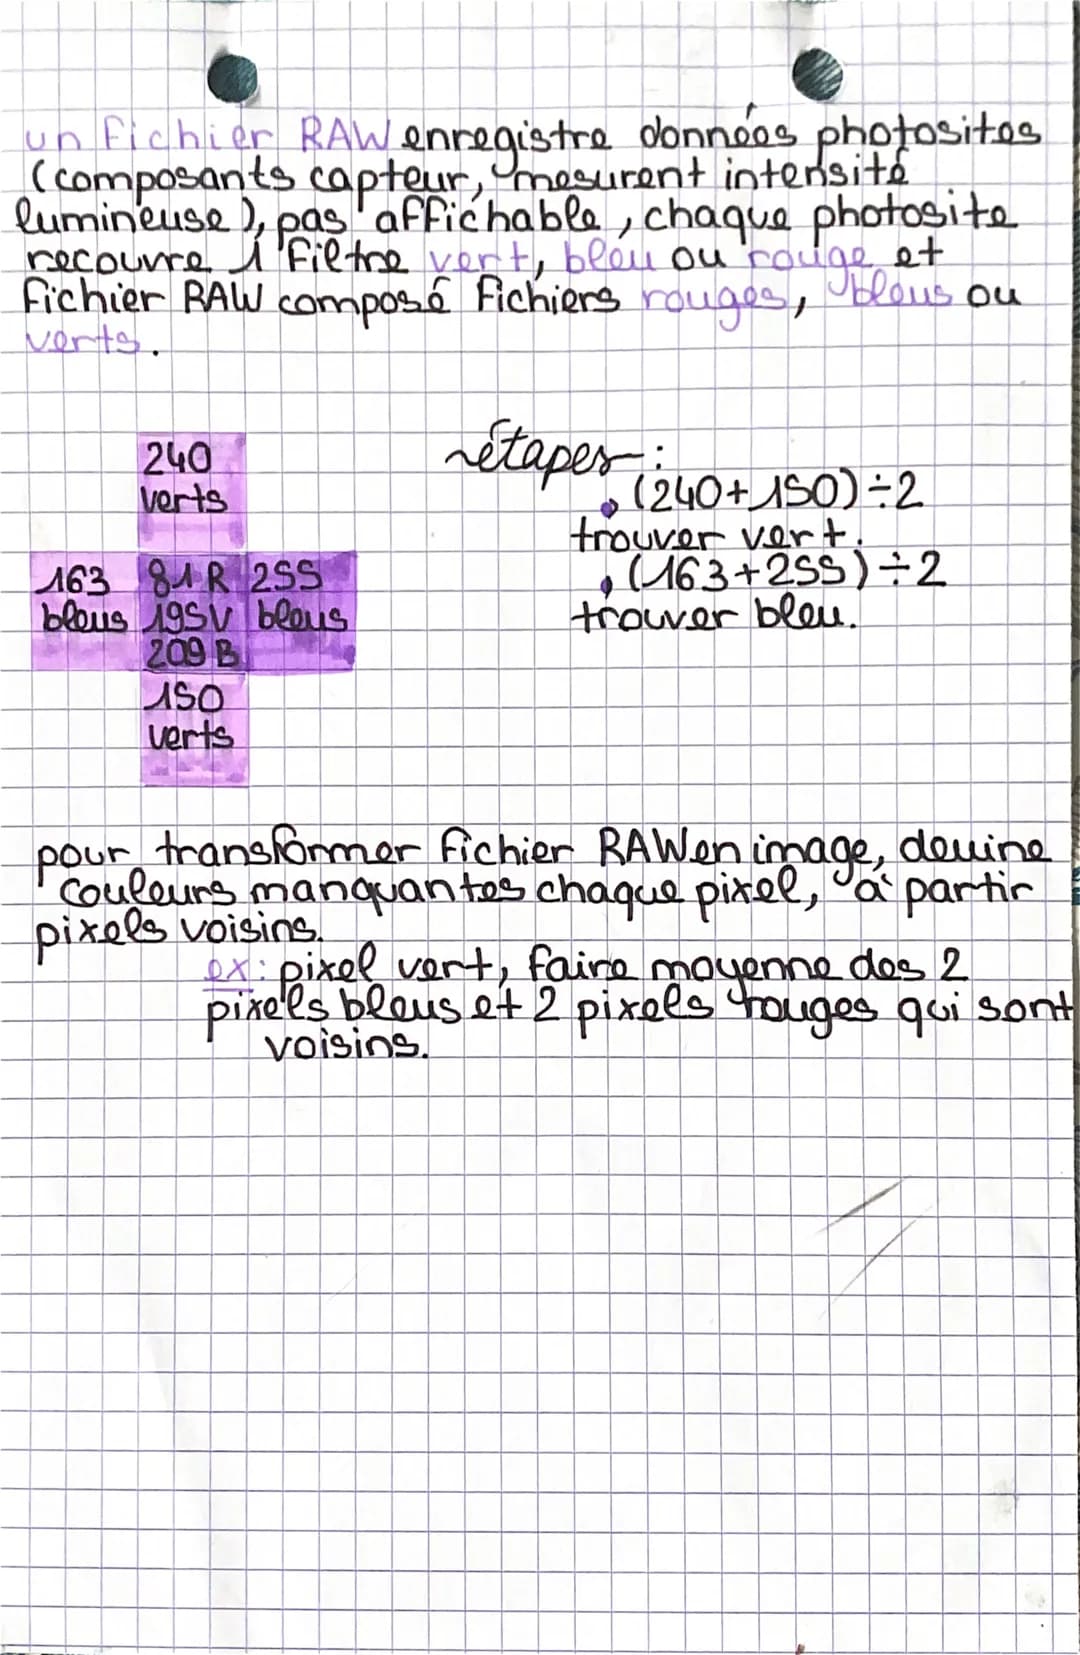 un fichier RAW enregistre données photosites
(composants capteur, mesurent intensité
lumineuse), pas affichable, chaque photosite
recouvre 1 filtre vert, bleu ou rouge et
fichier RAW composé fichiers rouges, bleus ou
verts.
240
verts
163
bleus
81 R
195 V
209 B
255
bleus
150
verts
étapes :
. (240+150)÷2
trouver vert.
. (163+255)÷2
trouver bleu.
pour transformer fichier RAW en image, devine
couleurs manquantes chaque pixel, à partir
pixels voisins.
ex: pixel vert, faire moyenne des 2
pixels bleus et 2 pixels rouges qui sont
voisins.